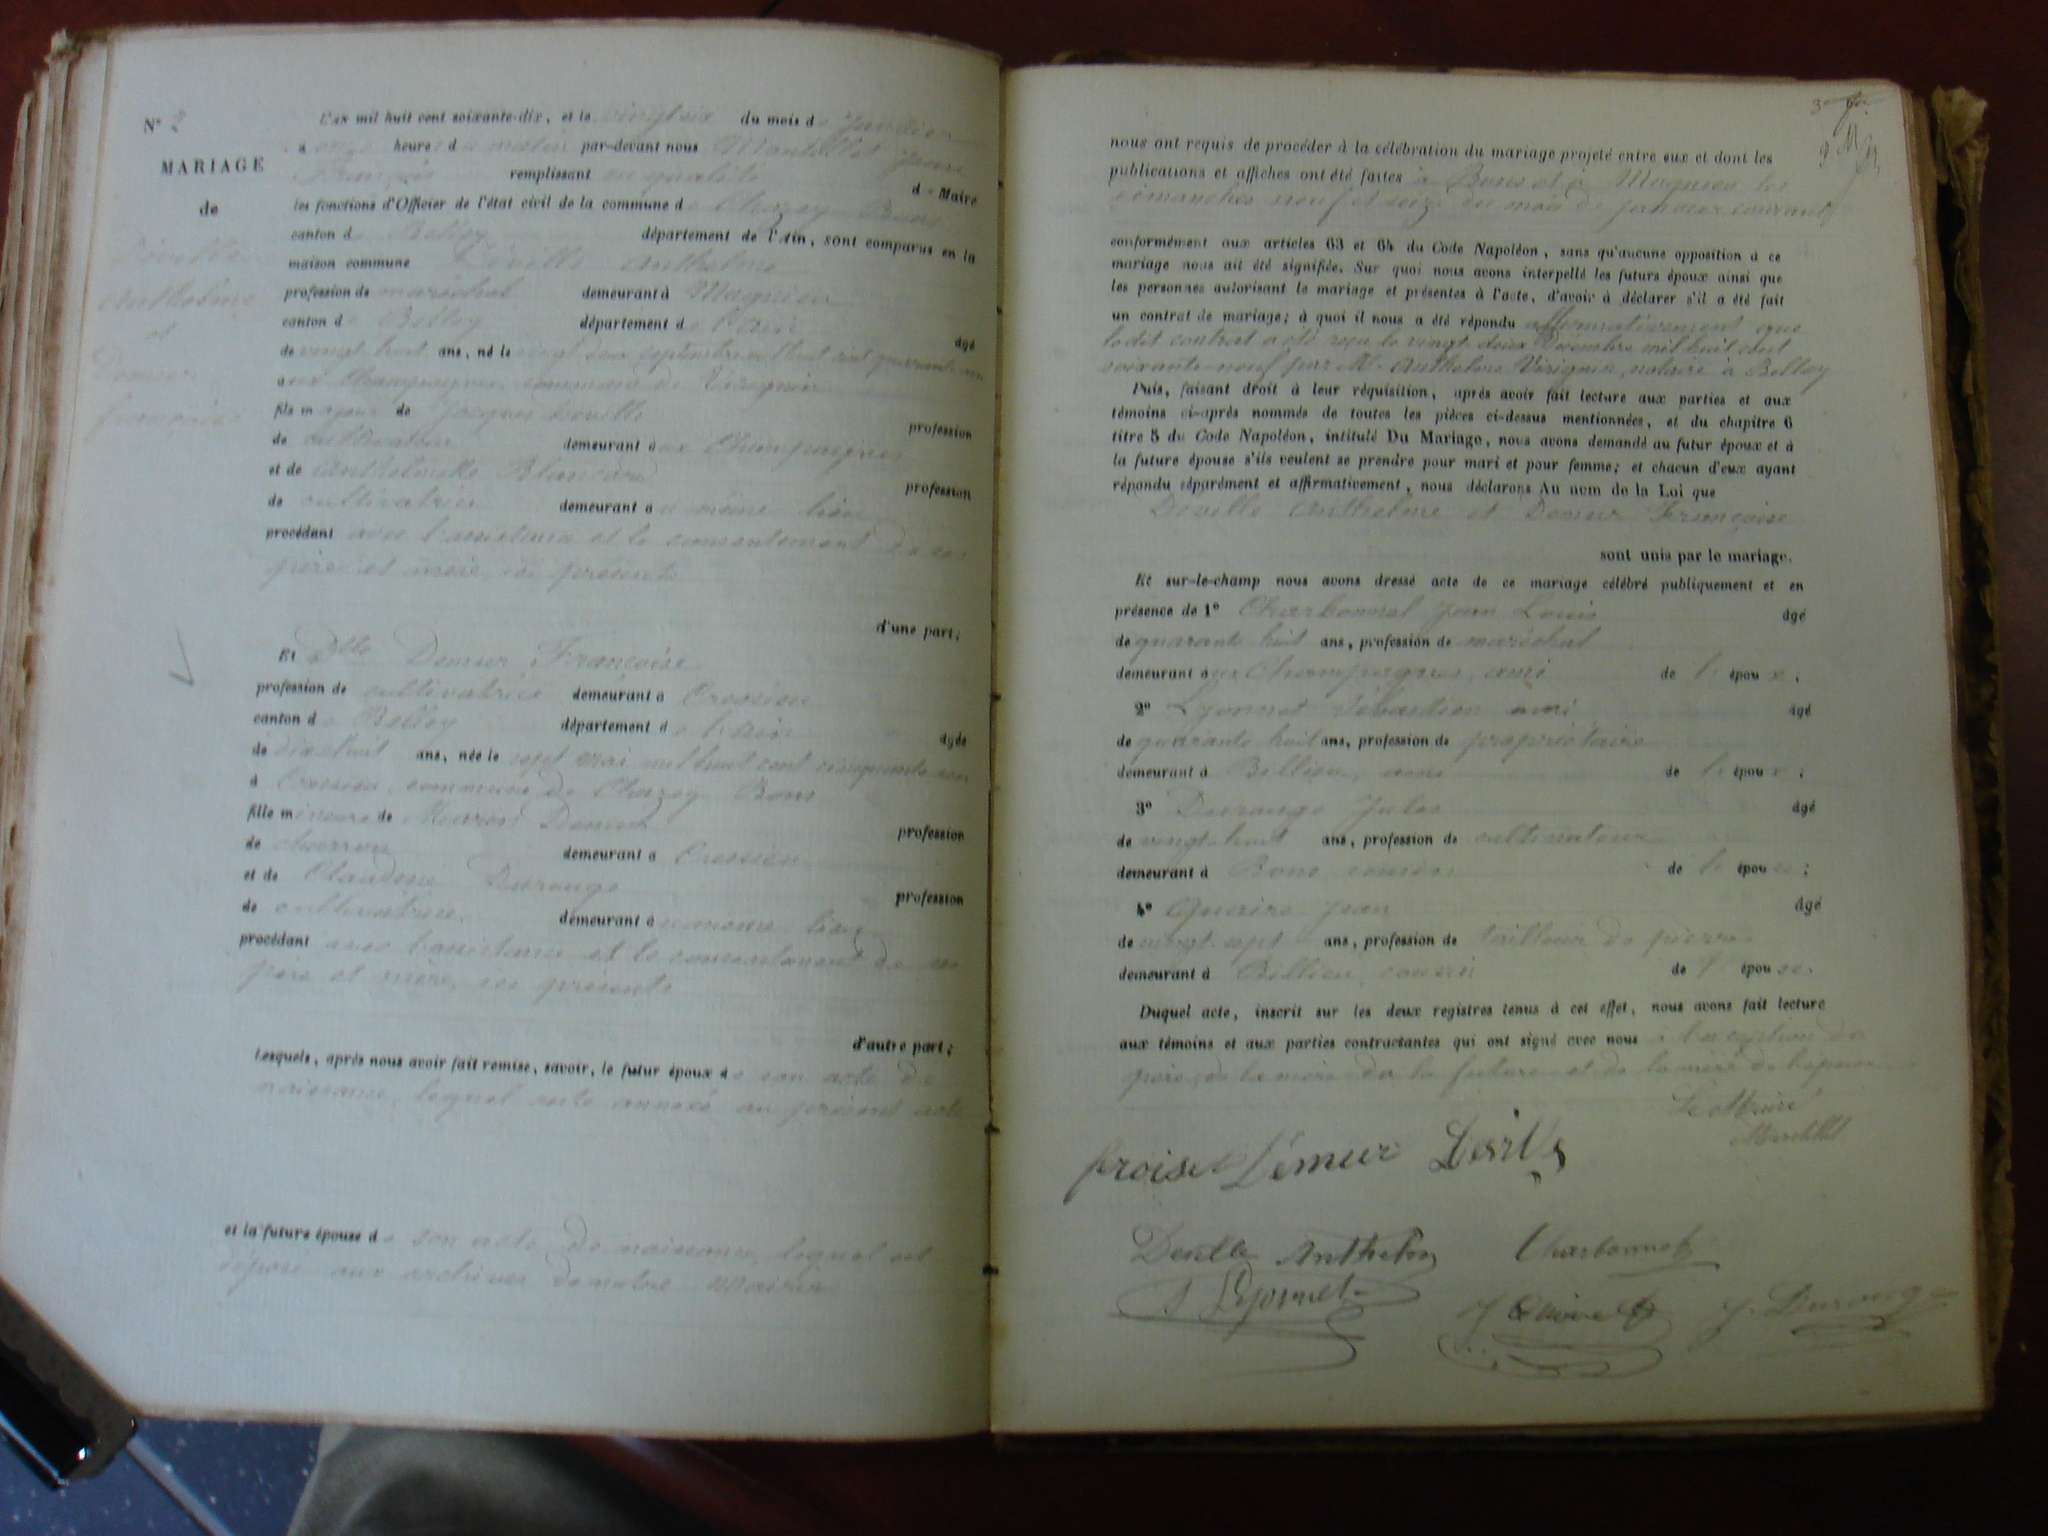 N° 2
MARIAGE
de
Deville
Anthelme
et
Demeur
Françoise
L'an mil huit cent soixante-dix, et le vingt six du mois de janvier
à onze heures du matin par-devant nous Mantillet Jean
François remplissant en qualité de Maire
les fonctions d'Officier de l'état civil de la commune de Chazey Bons
canton de Belley département de l'Ain, sont comparus en la
maison commune Deville Anthelme
profession de maréchal demeurant à Magnieu
canton de Belley département de l'ain âgé
de vingt huit ans, né le vingt deux septembre mil huit cent quarante un
aux Champagnes commune de Virignin
fils majeur de Jacques Deville profession
de cultivateur demeurant aux Champagnes
et de Anthelmette Blancard profession
de cultivatrice demeurant au même lieu
procédant avec l'assistance et le consentement de ses
père et mère, ici présents
d'une part;
Et Dlle Demeur Françoise
profession de cultivatrice demeurant à Cressieu
canton de Belley département de l'ain âgée
de dix huit ans, née le sept mai mil huit cent cinquante un
à Cressieu commune de Chazey Bons
fille mineure de Demeur profession
de charron demeurant à Cressieu
et de Claudine Durouge profession
de cultivatrice demeurant au même lieu
procédant avec l'assistance et le consentement de ses
père et mère, ici présents
d'autre part;
Lesquels, après nous avoir fait remise, savoir, le futur époux de son acte de
naissance, lequel reste annexé au présent acte
et la future épouse de son acte de naissance, lequel est
déposé aux archives de notre mairie
nous ont requis de procéder à la célébration du mariage projeté entre eux et dont les
publications et affiches ont été faites à Bons et à Magnieu les
dimanches neuf et seize du mois de janvier courant
conformément aux articles 63 et 64 du Code Napoléon, sans qu'aucune opposition à ce
mariage nous ait été signifiée. Sur quoi nous avons interpellé les futurs époux ainsi que
les personnes autorisant le mariage et présentes à l'acte, d'avoir à déclarer s'il a été fait
un contrat de mariage; à quoi il nous a été répondu affirmativement que
le dit contrat a été reçu le vingt deux décembre mil huit cent
soixante-neuf par Me Anthelme Virignin, notaire à Belley
Puis, faisant droit à leur réquisition, après avoir fait lecture aux parties et aux
témoins ci-après nommés de toutes les pièces ci-dessus mentionnées, et du chapitre 6
titre 5 du Code Napoléon, intitulé Du Mariage, nous avons demandé au futur époux et à
la future épouse s'ils veulent se prendre pour mari et pour femme; et chacun d'eux ayant
répondu séparément et affirmativement, nous déclarons Au nom de la Loi que
Deville Anthelme et Demeur Françoise
sont unis par le mariage.
Et sur-le-champ nous avons dressé acte de ce mariage célébré publiquement et en
présence de 1° Charbonnet Jean Louis âgé
de quarante huit ans, profession de maréchal
demeurant aux Champagnes, ami de l'époux,
2° Lyonnet Sébastien ami âgé
de quarante huit ans, profession de propriétaire
demeurant à Billieu, ami de l'époux;
3° Durouge Jules âgé
de vingt huit ans, profession de cultivateur
demeurant à Bons, cousin de l'épouse;
4° Jean âgé
de vingt-sept ans, profession de tailleur de pierre
demeurant à Billieu, cousin de l'épouse.
Duquel acte, inscrit sur les deux registres tenus à cet effet, nous avons fait lecture
aux témoins et aux parties contractantes qui ont signé avec nous à l'exception du
père, de la mère de la future et de la mère de l'époux
Le Maire
Mantillet
froise Demeur Deville
Deville Anthelm Charbonnet
S Lyonnet J. Durouge